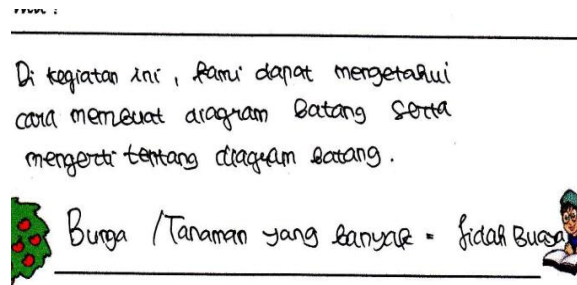 Di kegiatan ini, kami dapat mengetahui
cara membuat diagram batang serta
mengerti tentang diagram batang.
Bunga / Tanaman yang banyak = lidah Buaya